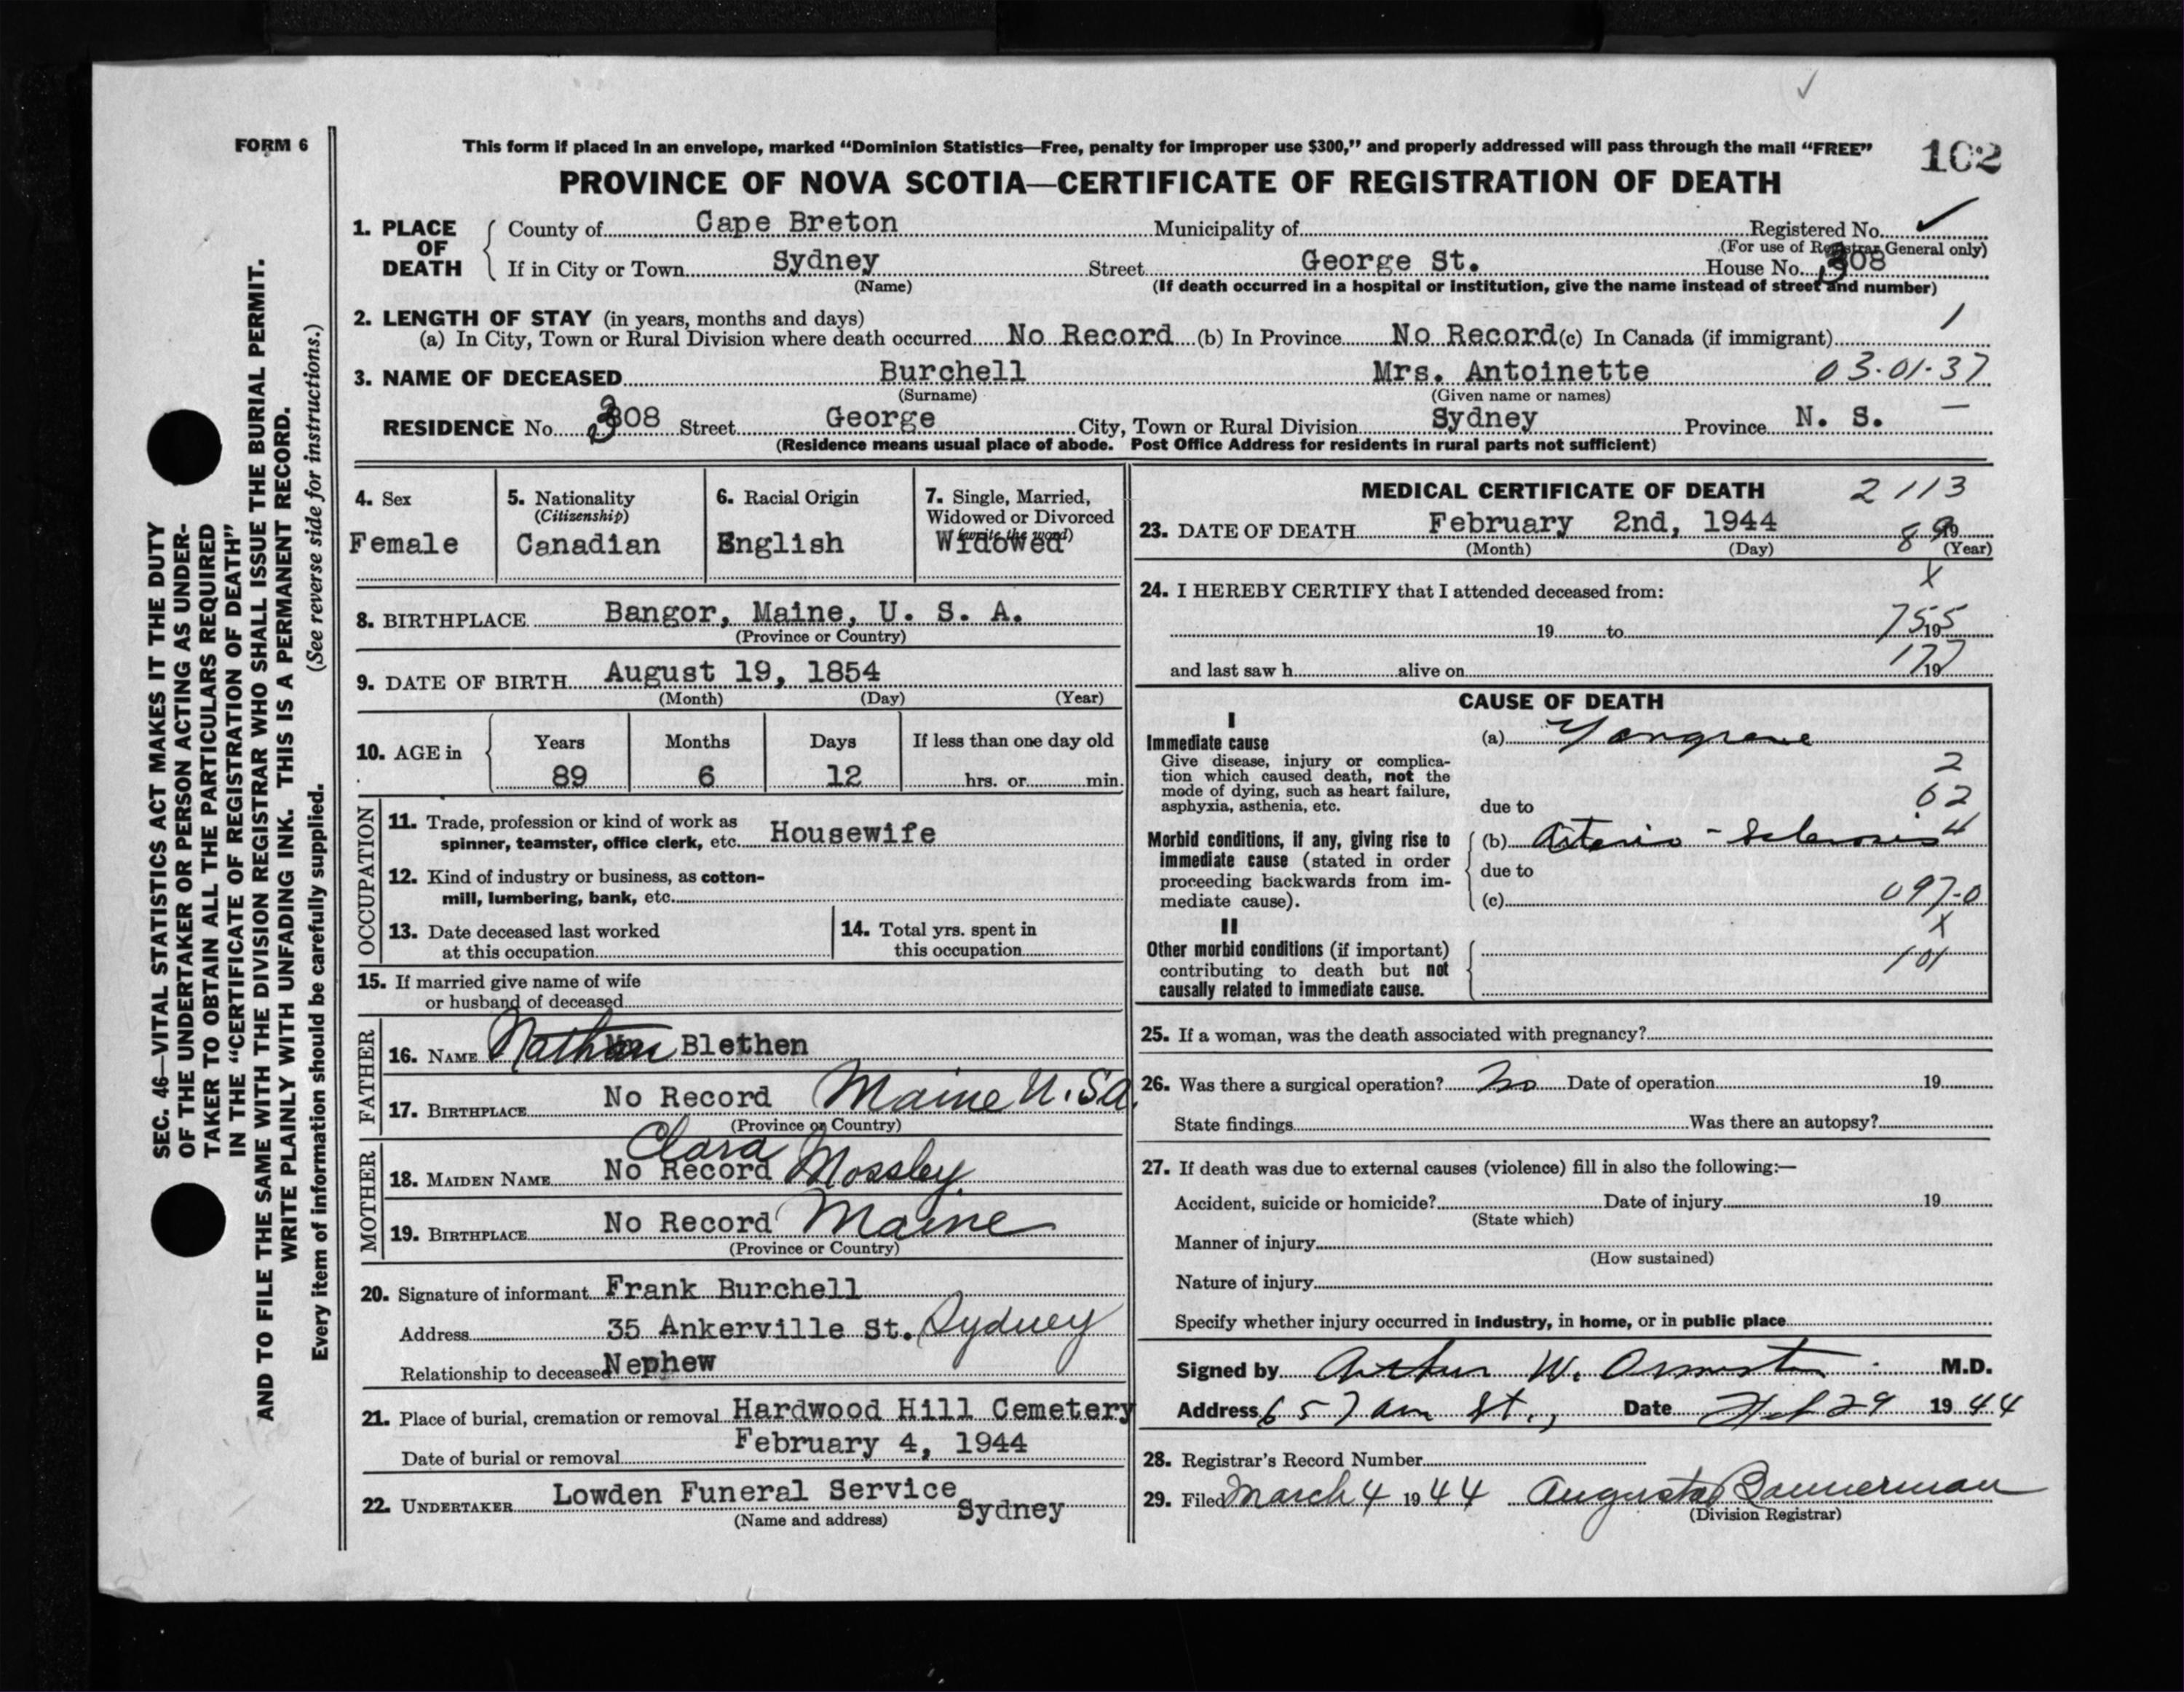 FORM 6
This form if placed in an envelope, marked “Dominion Statistics—Free, penalty for improper use $300,” and properly addressed will pass through the mail “FREE”
102
PROVINCE OF NOVA SCOTIA—CERTIFICATE OF REGISTRATION OF DEATH
1. PLACE OF DEATH
County of Cape Breton Municipality of Registered No. ✓
(For use of Registrar General only)
If in City or Town Sydney Street George St. House No. 308
(Name) (If death occurred in a hospital or institution, give the name instead of street and number)
2. LENGTH OF STAY (in years, months and days) 1
(a) In City, Town or Rural Division where death occurred No Record (b) In Province No Record (c) In Canada (if immigrant)
3. NAME OF DECEASED Burchell Mrs. Antoinette 03-01-37
(Surname) (Given name or names)
RESIDENCE No. 308 Street George City, Town or Rural Division Sydney Province N. S. —
(Residence means usual place of abode. Post Office Address for residents in rural parts not sufficient)
4. Sex
Female
5. Nationality
(Citizenship)
Canadian
6. Racial Origin
English
7. Single, Married,
Widowed or Divorced
(write the word)
Widowed
8. BIRTHPLACE Bangor, Maine, U. S. A.
(Province or Country)
9. DATE OF BIRTH August 19, 1854
(Month) (Day) (Year)
10. AGE in
Years Months Days If less than one day old
89 6 12 hrs. or min.
OCCUPATION
11. Trade, profession or kind of work as
spinner, teamster, office clerk, etc. Housewife
12. Kind of industry or business, as cotton-
mill, lumbering, bank, etc.
13. Date deceased last worked
at this occupation
14. Total yrs. spent in
this occupation
15. If married give name of wife
or husband of deceased
FATHER
16. NAME Nathan Blethen
17. BIRTHPLACE No Record Maine U.S.A.
(Province or Country)
MOTHER
Clara
18. MAIDEN NAME No Record Mossley
19. BIRTHPLACE No Record Maine
(Province or Country)
20. Signature of informant Frank Burchell
Address 35 Ankerville St. Sydney
Relationship to deceased Nephew
21. Place of burial, cremation or removal Hardwood Hill Cemetery
Date of burial or removal February 4, 1944
22. UNDERTAKER Lowden Funeral Service Sydney
(Name and address)
MEDICAL CERTIFICATE OF DEATH 2113
23. DATE OF DEATH February 2nd, 1944 19
89
(Month) (Day) (Year)
X
24. I HEREBY CERTIFY that I attended deceased from:
19 to 19
755
and last saw h alive on 19
177
CAUSE OF DEATH
I
Immediate cause (a)
Give disease, injury or complica-
tion which caused death, not the
mode of dying, such as heart failure,
asphyxia, asthenia, etc.
2
62
4
due to
Morbid conditions, if any, giving rise to
immediate cause (stated in order
proceeding backwards from im-
mediate cause).
(b) Arterio-Sclerosis
due to
(c) 097-0
X
II
Other morbid conditions (if important)
contributing to death but not
causally related to immediate cause.
101
25. If a woman, was the death associated with pregnancy?
26. Was there a surgical operation? No Date of operation 19
State findings Was there an autopsy?
27. If death was due to external causes (violence) fill in also the following:—
Accident, suicide or homicide? Date of injury 19
(State which)
Manner of injury
(How sustained)
Nature of injury
Specify whether injury occurred in industry, in home, or in public place
Signed by Arthur W. Ormiston M.D.
Address St., Date Feb 29 1944
28. Registrar's Record Number
29. Filed March 4 1944 Augusta Bannerman
(Division Registrar)
SEC. 46—VITAL STATISTICS ACT MAKES IT THE DUTY
OF THE UNDERTAKER OR PERSON ACTING AS UNDER-
TAKER TO OBTAIN ALL THE PARTICULARS REQUIRED
IN THE “CERTIFICATE OF REGISTRATION OF DEATH”
AND TO FILE THE SAME WITH THE DIVISION REGISTRAR WHO SHALL ISSUE THE BURIAL PERMIT.
WRITE PLAINLY WITH UNFADING INK. THIS IS A PERMANENT RECORD.
Every item of information should be carefully supplied. (See reverse side for instructions.)